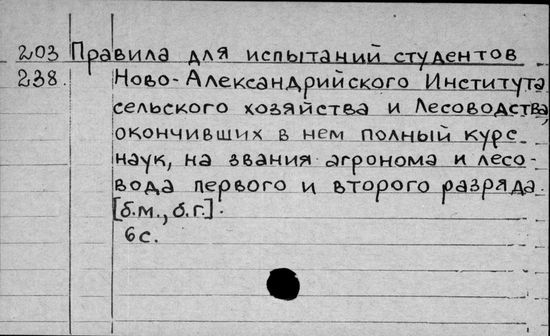 203 Правила для испытаний студентов
238. Ново-Александрийского Института
сельского хозяйства и Лесоводства,
окончивших в нем полный курс
наук, на звания агронома и лесо-
вода первого и второго разряда.
[б.м., б.г.].
6с.